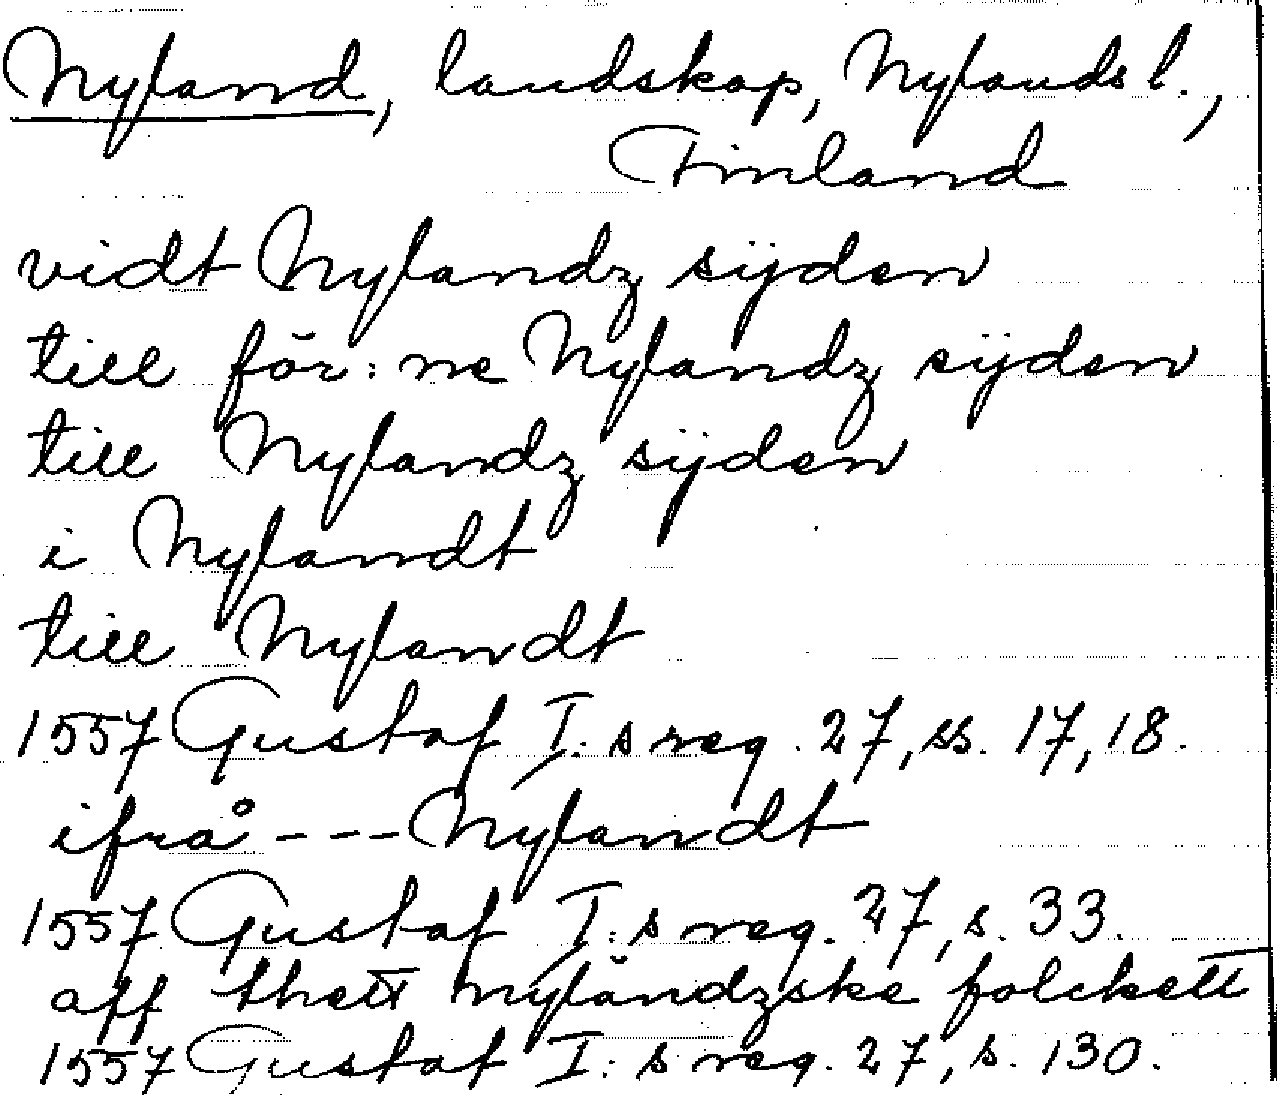 Nyland, landskap, Nylands l.,
Finland
vidt Nylandz sijden
till för: ne Nylandz sijden
till Nylandz sijden
i Nylandt
till Nylandt
1557 Gustaf I: s reg. 27, ss. 17, 18.
ifrå --- Nylandt
1557 Gustaf I: s reg. 27, s. 33.
aff thett nyländzske folckett
1557 Gustaf I: s reg. 27, s. 130.